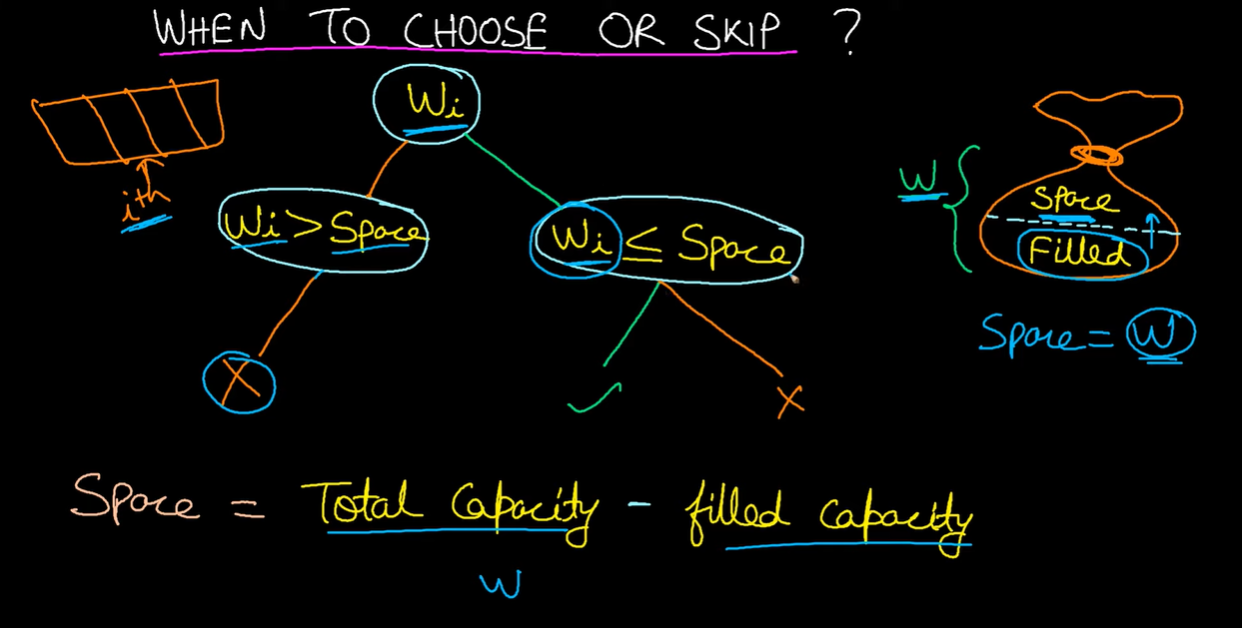 WHEN TO CHOOSE OR SKIP ?
Wi
ith
Wi > Space
Wi ≤ Space
W
Space
Filled
Space = W
X
✓
X
Space = Total Capacity - filled capacity
W